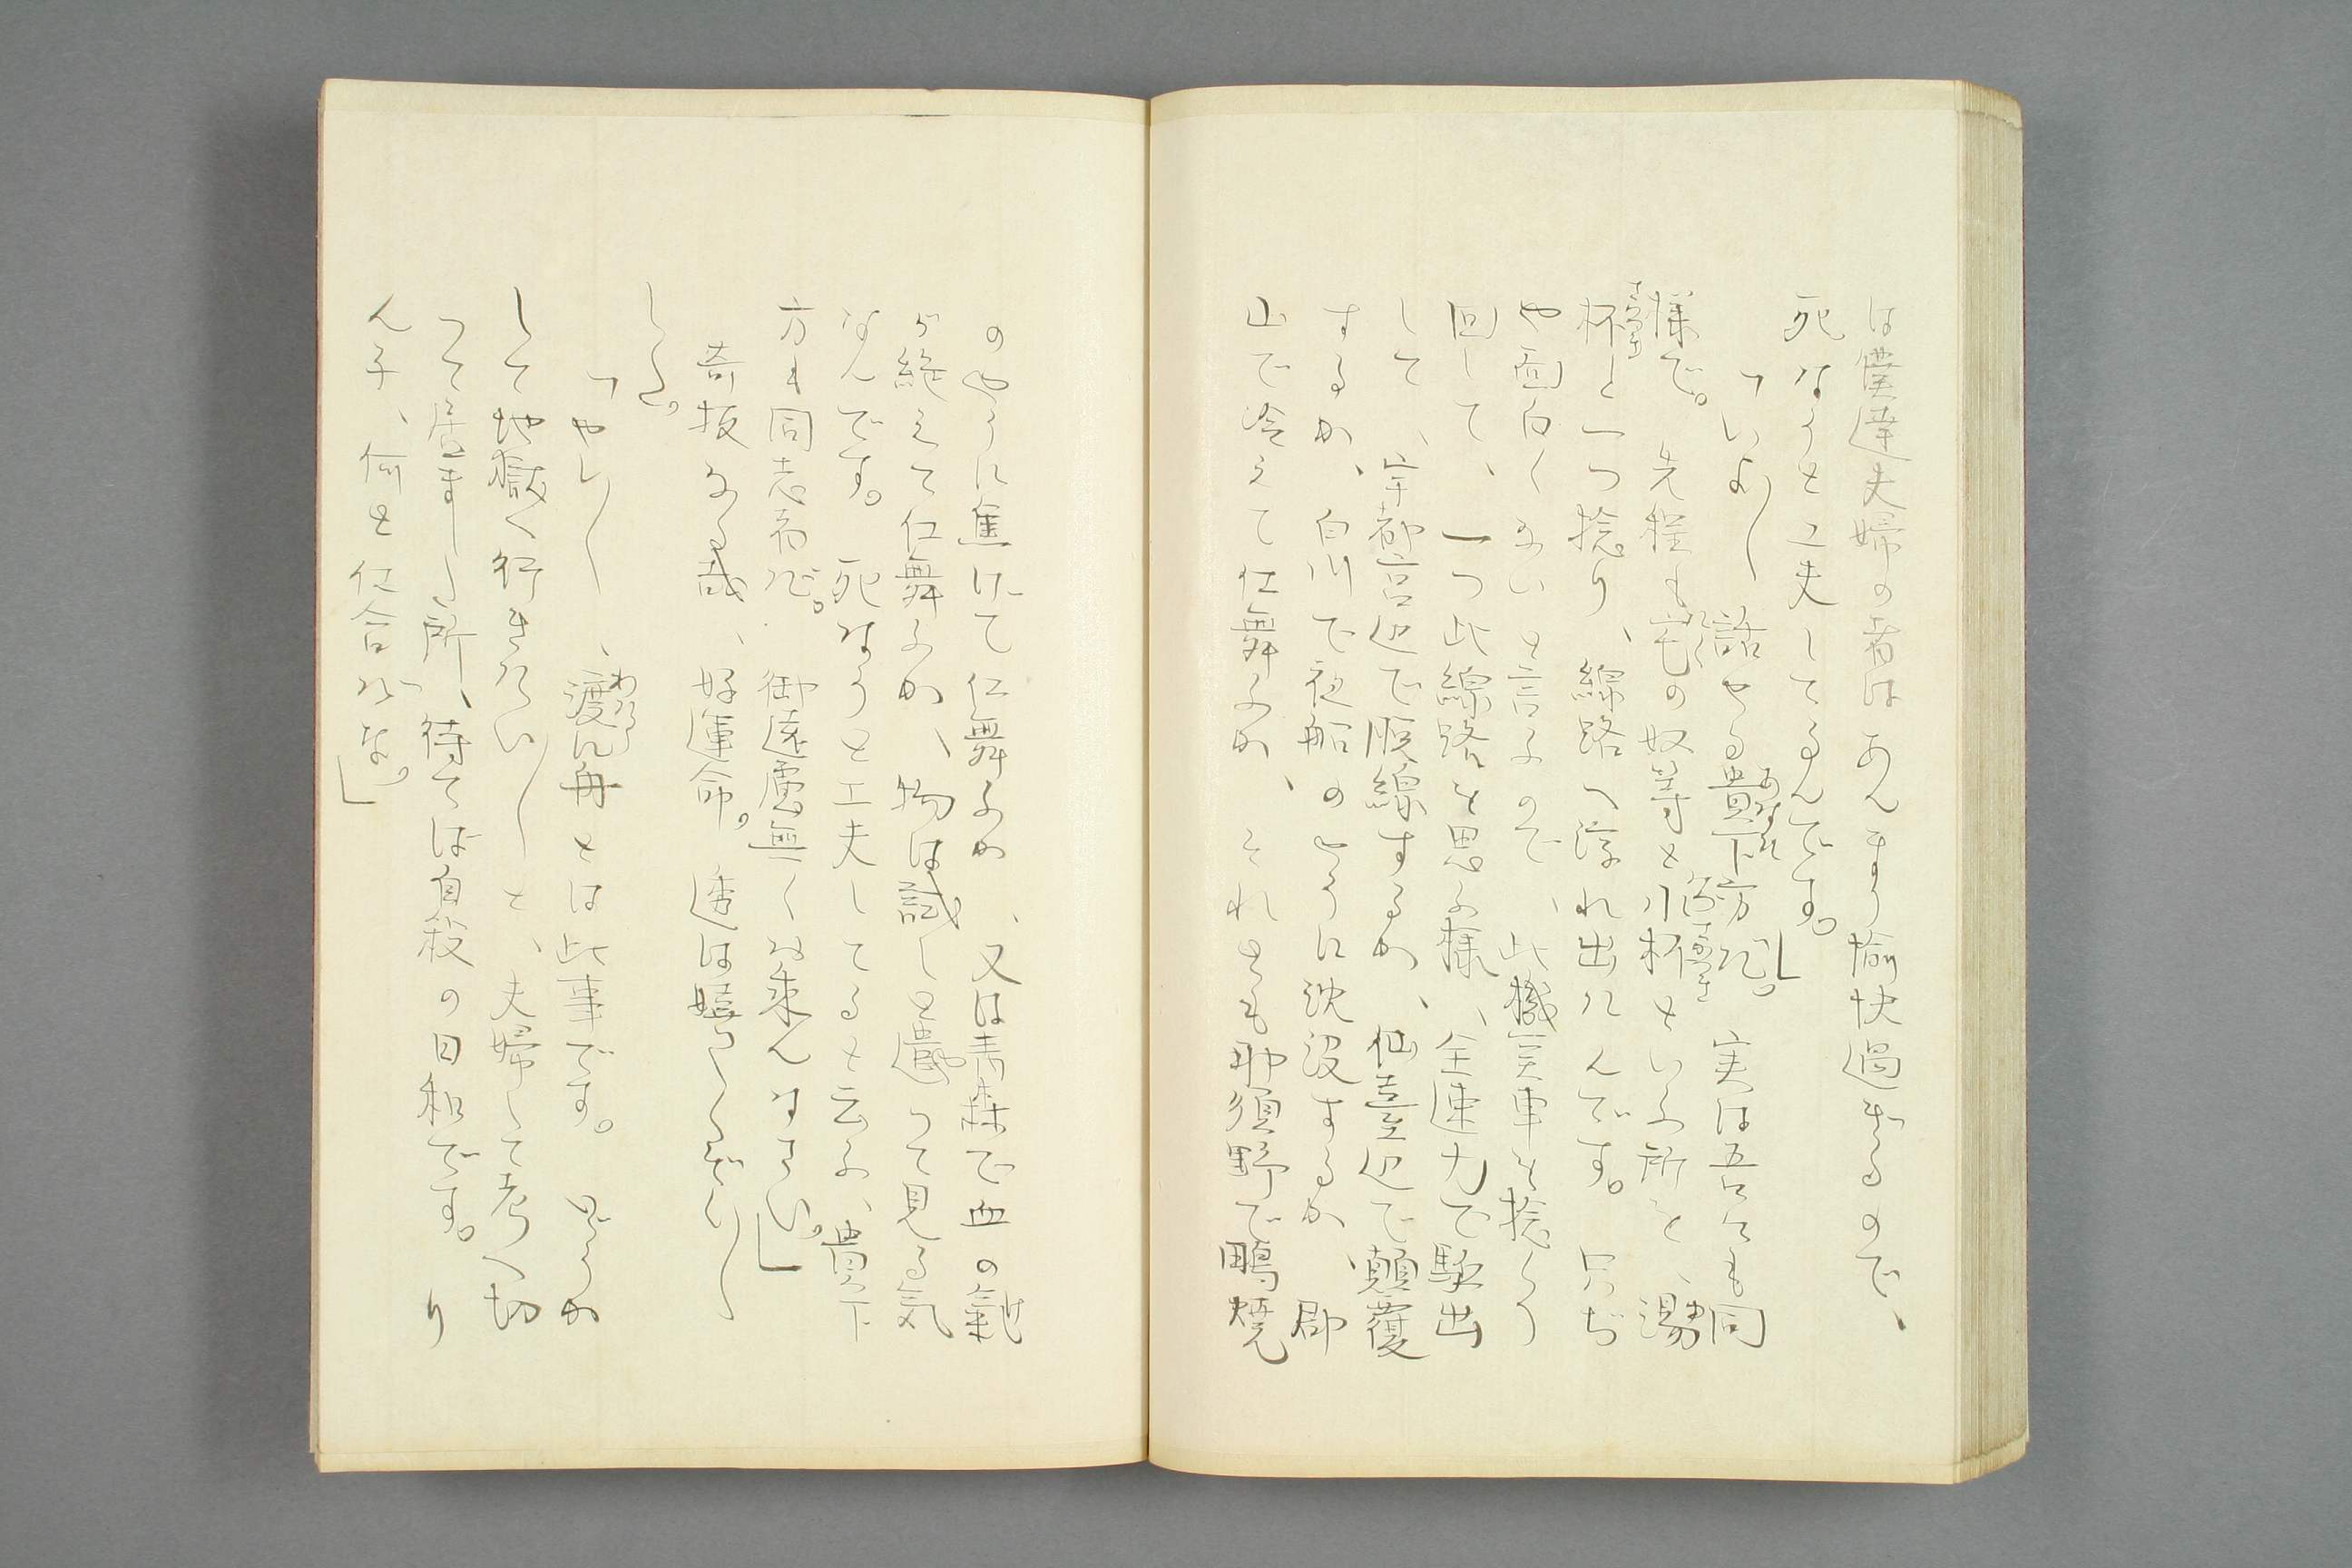 は僕達夫婦の者はあんまり愉快過ぎるので、
死なうと工夫してるんです。」
「いよ〱話せる貴下方だ。実は吾々も同
様で。先程も宅の奴等と小杯といふ所を、湯
杯と一つ捻り、線路へ浮れ出たんです。只ぢ
や面白くないと言ふので、此機関車を捻くり
回して、一つ此線路を思ふ様、全速力で駈出
して、宇都宮辺で脱線するか、仙臺辺で顛覆
するか、白川で夜船のやうに沈没するか 郡
山で冷えて仕舞ふか、それとも那須野で鴫焼
のやうに焦げて仕舞ふか、又は青森で血の氣
が絶えて仕舞ふか、物は試しと遣つて見る気
なんです。死なうと工夫してると云ふ、貴下
方も同志者だ。御遠慮無くお乘んなさい。」
奇抜なる哉、好運命。達は嬉つくぞり〱
した。
「やれ〱、渡に舟とは此事です。どうか
して地獄へ行きたい〱と、夫婦して考へ切
つて居ました所、待てば自殺の日和です。り
ん子、何と仕合だな。」